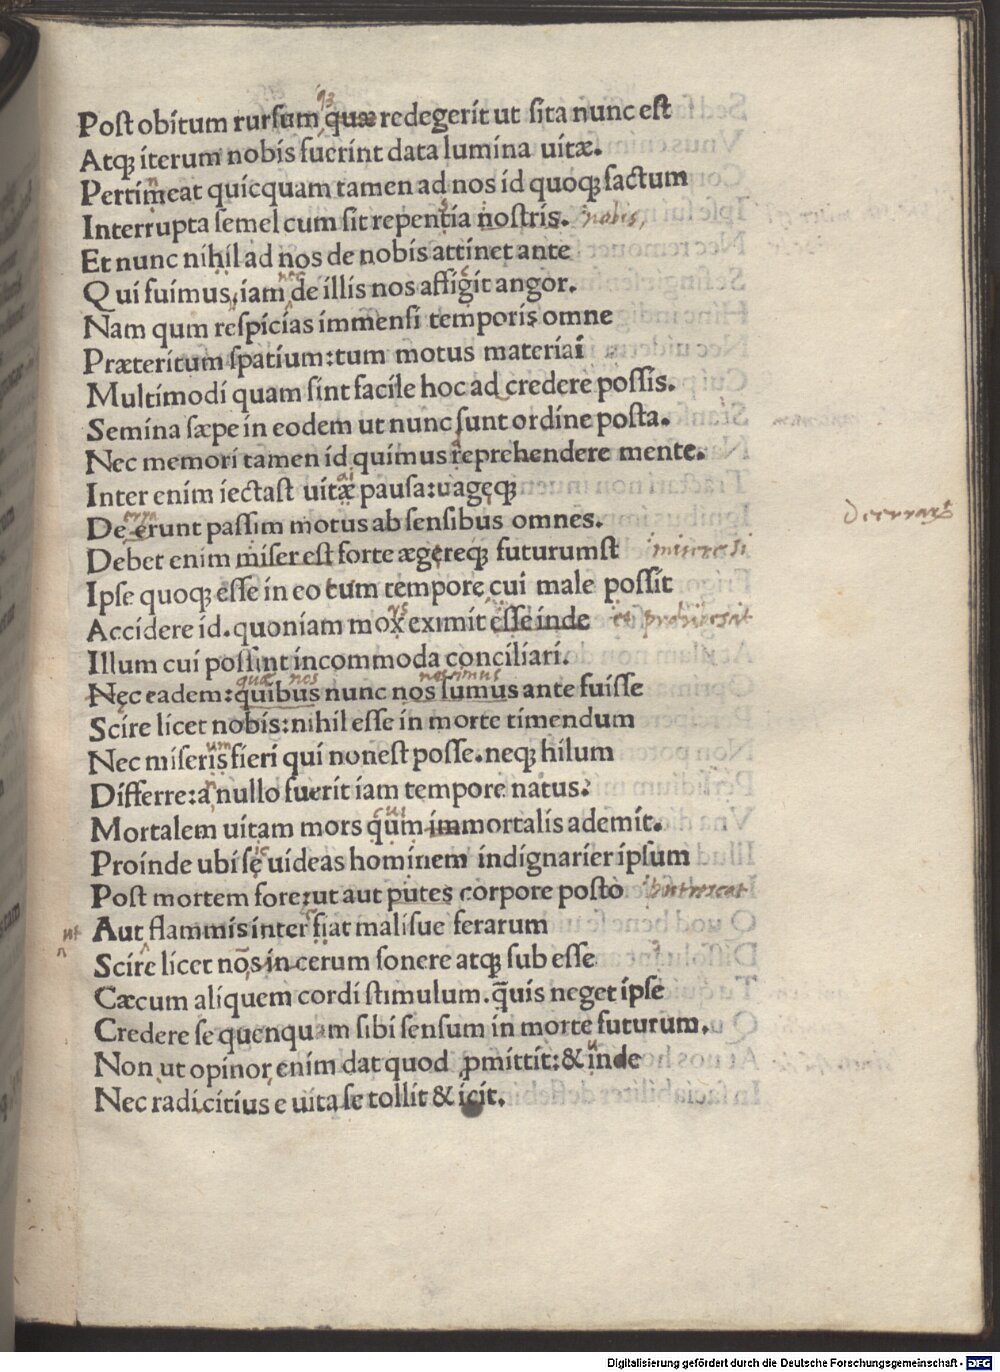 Post obitum rursum quæ redegerit ut sita nunc est
Atq; iterum nobis fuerint data lumina uitæ.
Pertimeat quicquam tamen ad nos id quoq; factum
Interrupta semel cum sit repentia nostris. nobis,
Et nunc nihil ad nos de nobis attinet ante
Qui fuimus, iam de illis nos affigit angor.
Nam qum respicias immensi temporis omne
Præteritum spatium: tum motus materiai
Multimodi quam sint facile hoc ad credere possis.
Semina sæpe in eodem ut nunc sunt ordine posta.
Nec memori tamen id quimus reprehendere mente.
Inter enim iectast uitæ pausa: uageq;
De erunt passim motus ab sensibus omnes. Deerrarũt
Debet enim miser est forte ægereq; futurumst misere si
Ipse quoq; esse in eo tum tempore cui male possit
Accidere id. quoniam mox eximit esse inde
Illum cui possint incommoda conciliari.
quæ nos
Nec eadem: quibus nunc nos sumus ante fuisse
Scire licet nobis: nihil esse in morte timendum
Nec miseris fieri qui nonest posse. neq; hilum
Differre: a nullo fuerit iam tempore natus.
Mortalem uitam mors qum immortalis ademit.
Proinde ubi se uideas hominem indignarier ipsum
Post mortem fore: ut aut putes corpore posto putrescat
ut Aut flammis inter fiat malisue ferarum
Scire licet nõs in cerum sonere atq; sub esse
Cæcum aliquem cordi stimulum. q̄uis neget ipse
Credere se quenquam sibi sensum in morte futurum.
Non ut opinor enim dat quod ꝓmittit: & inde
Nec radicitius e uita se tollit & icit.
Digitalisierung gefördert durch die Deutsche Forschungsgemeinschaft - DFG